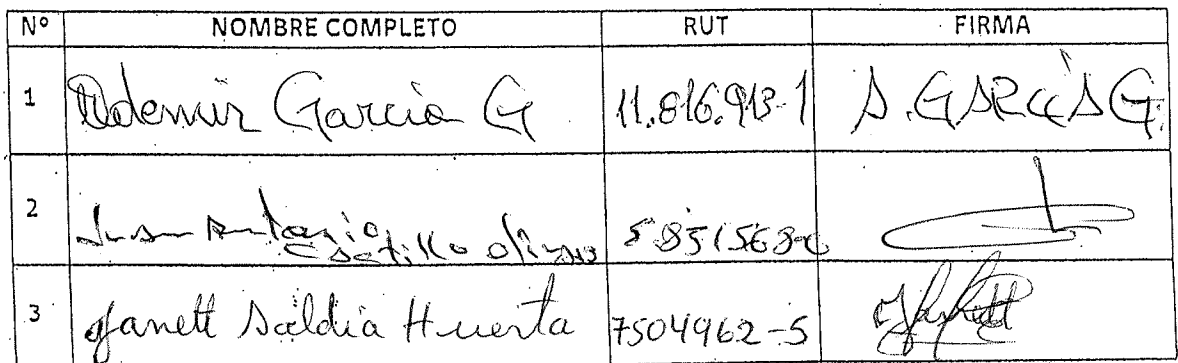 Nº NOMBRE COMPLETO RUT FIRMA
1 Ademir Garcia G 11.816.913-1 A. GARCIA G.
2 Juan Antonio
Castillo
3 Janett Saldia Huerta 7504962-5